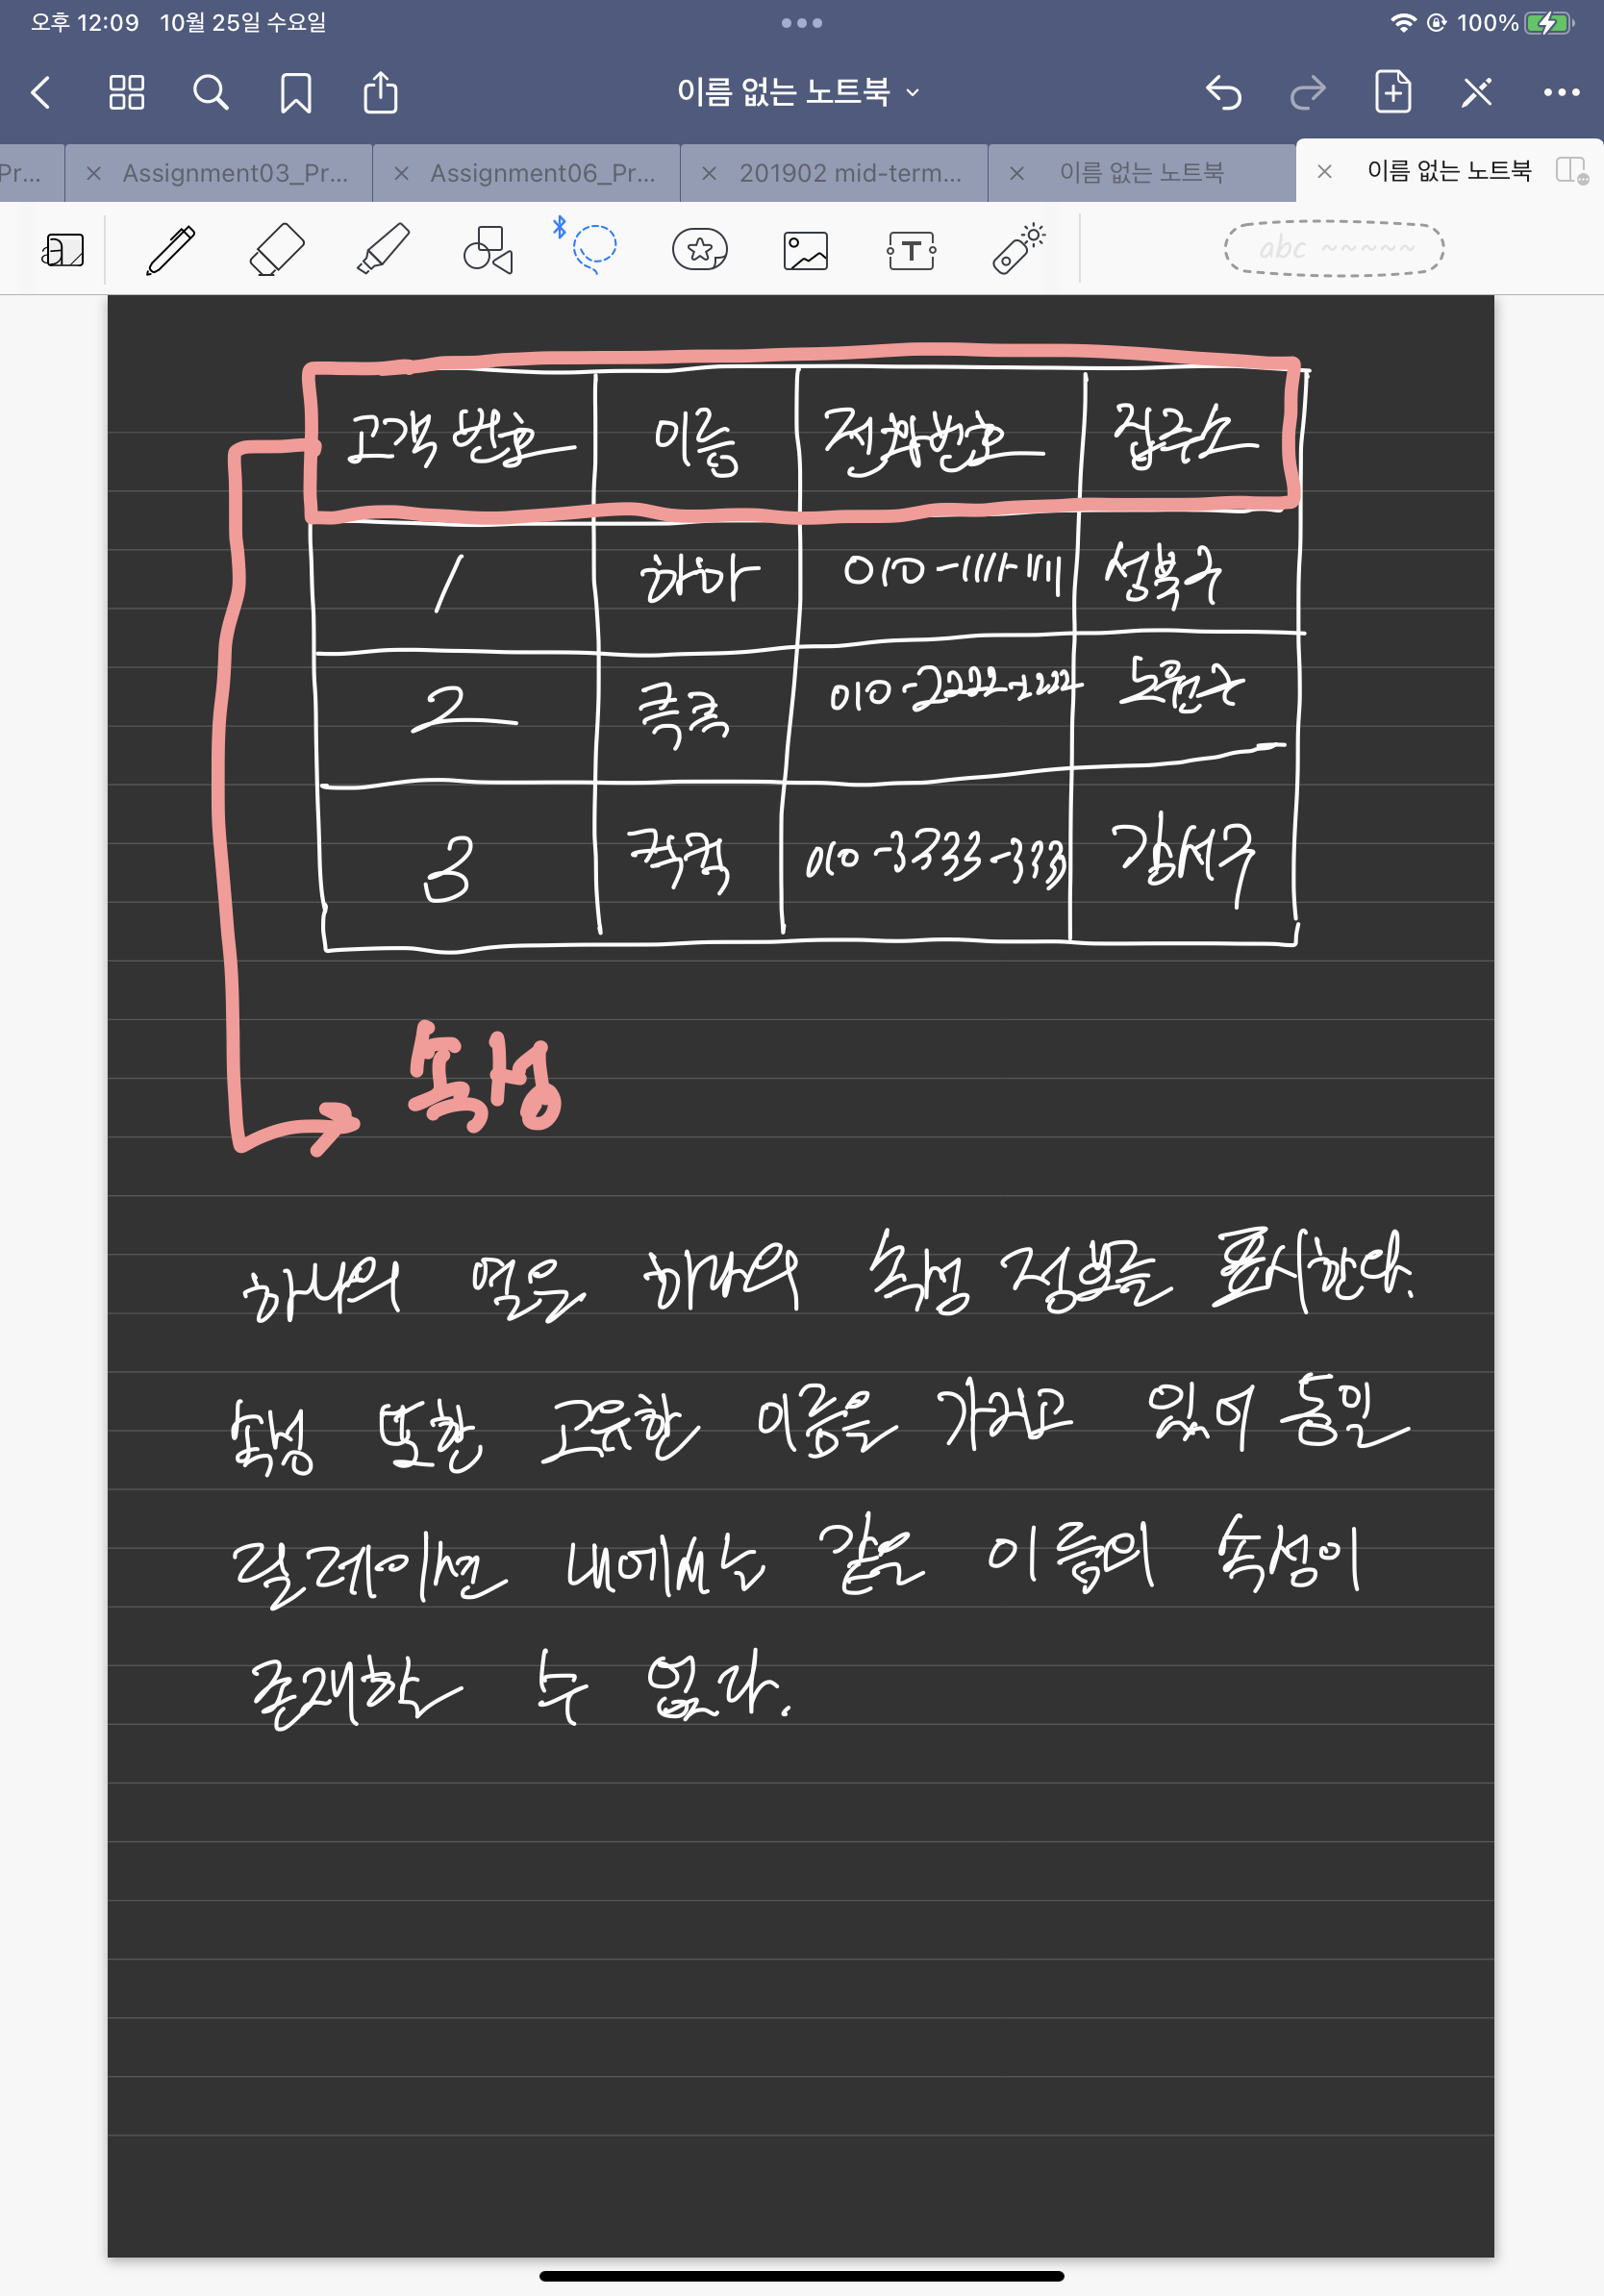 오후 12:09 10월 25일 수요일 100%
이름 없는 노트북
Pr... Assignment03_Pr... Assignment06_Pr... 201902 mid-term... 이름 없는 노트북 이름 없는 노트북
T abc
고객 번호 이름 전화번호 집주소
1 하마 010-1111-1111 성북구
2 010-2222-2222 노원구
3 010-3333-333 강서구
속성
하나의 열은 하나의 속성 정보를 표시한다.
속성 또한 고유한 이름을 가지고 있어 동일
릴레이션 내에서는 같은 이름의 속성이
존재할 수 없다.